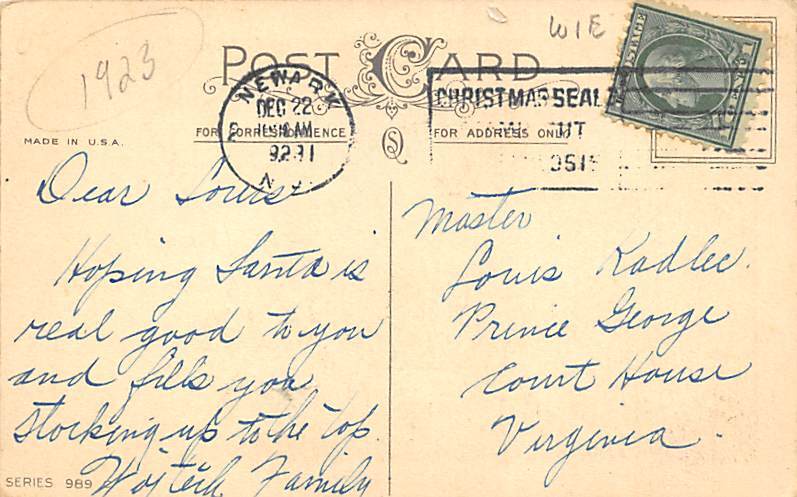 1923
WIE
POST CARD
NEWARK
DEC 22
AM
N.J.
CHRISTMAS SEAL
MADE IN U.S.A.
FOR CORRESPONDENCE
FOR ADDRESS ONLY
Dear Louis
Hoping Santa is
real good to you
and fills you
stocking up to the top.
Family
SERIES 989
Master
Louis Kadlec.
Prince George
Court House
Virginia.